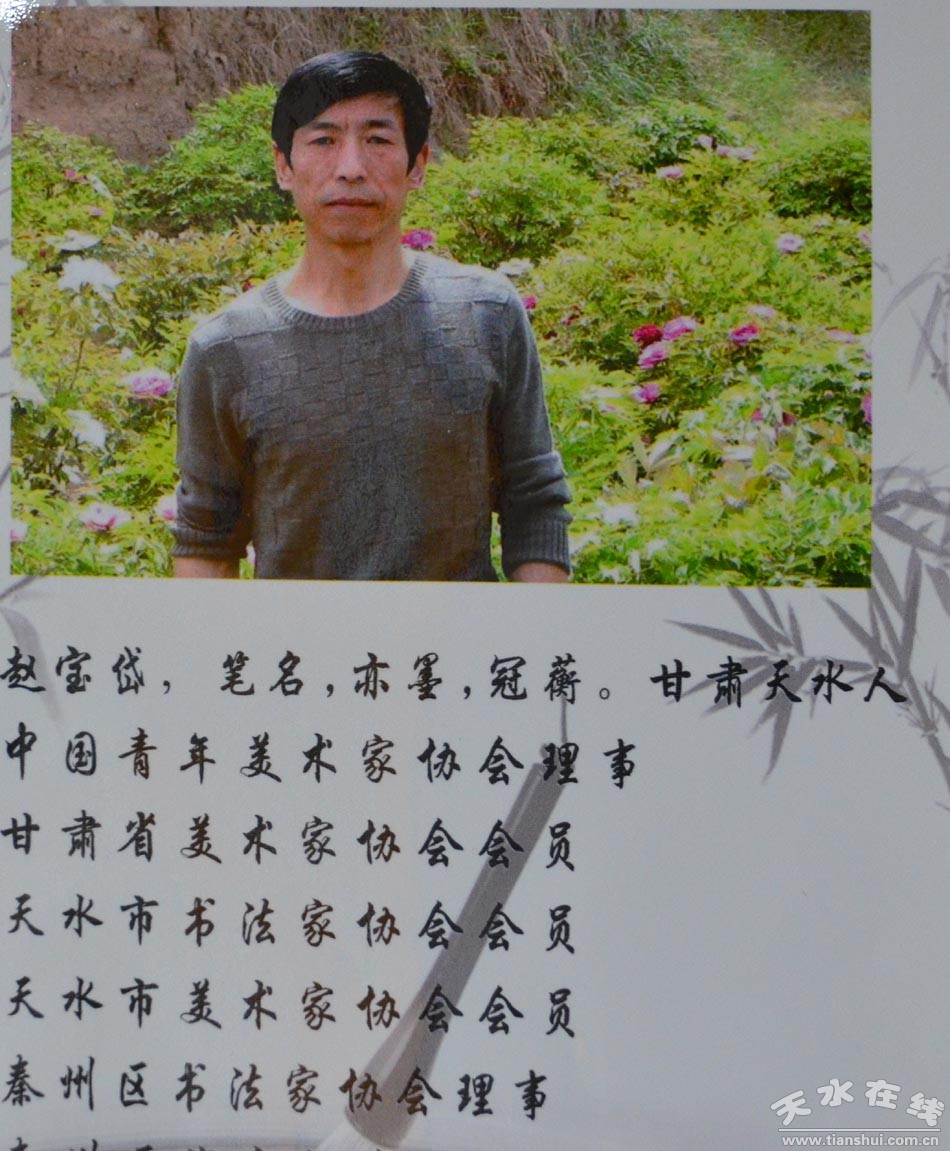 赵宝岱，笔名，亦墨，冠蘅。甘肃天水人
中国青年美术家协会理事
甘肃省美术家协会会员
天水市书法家协会会员
天水市美术家协会会员
秦州区书法家协会理事
天水在线
www.tianshui.com.cn